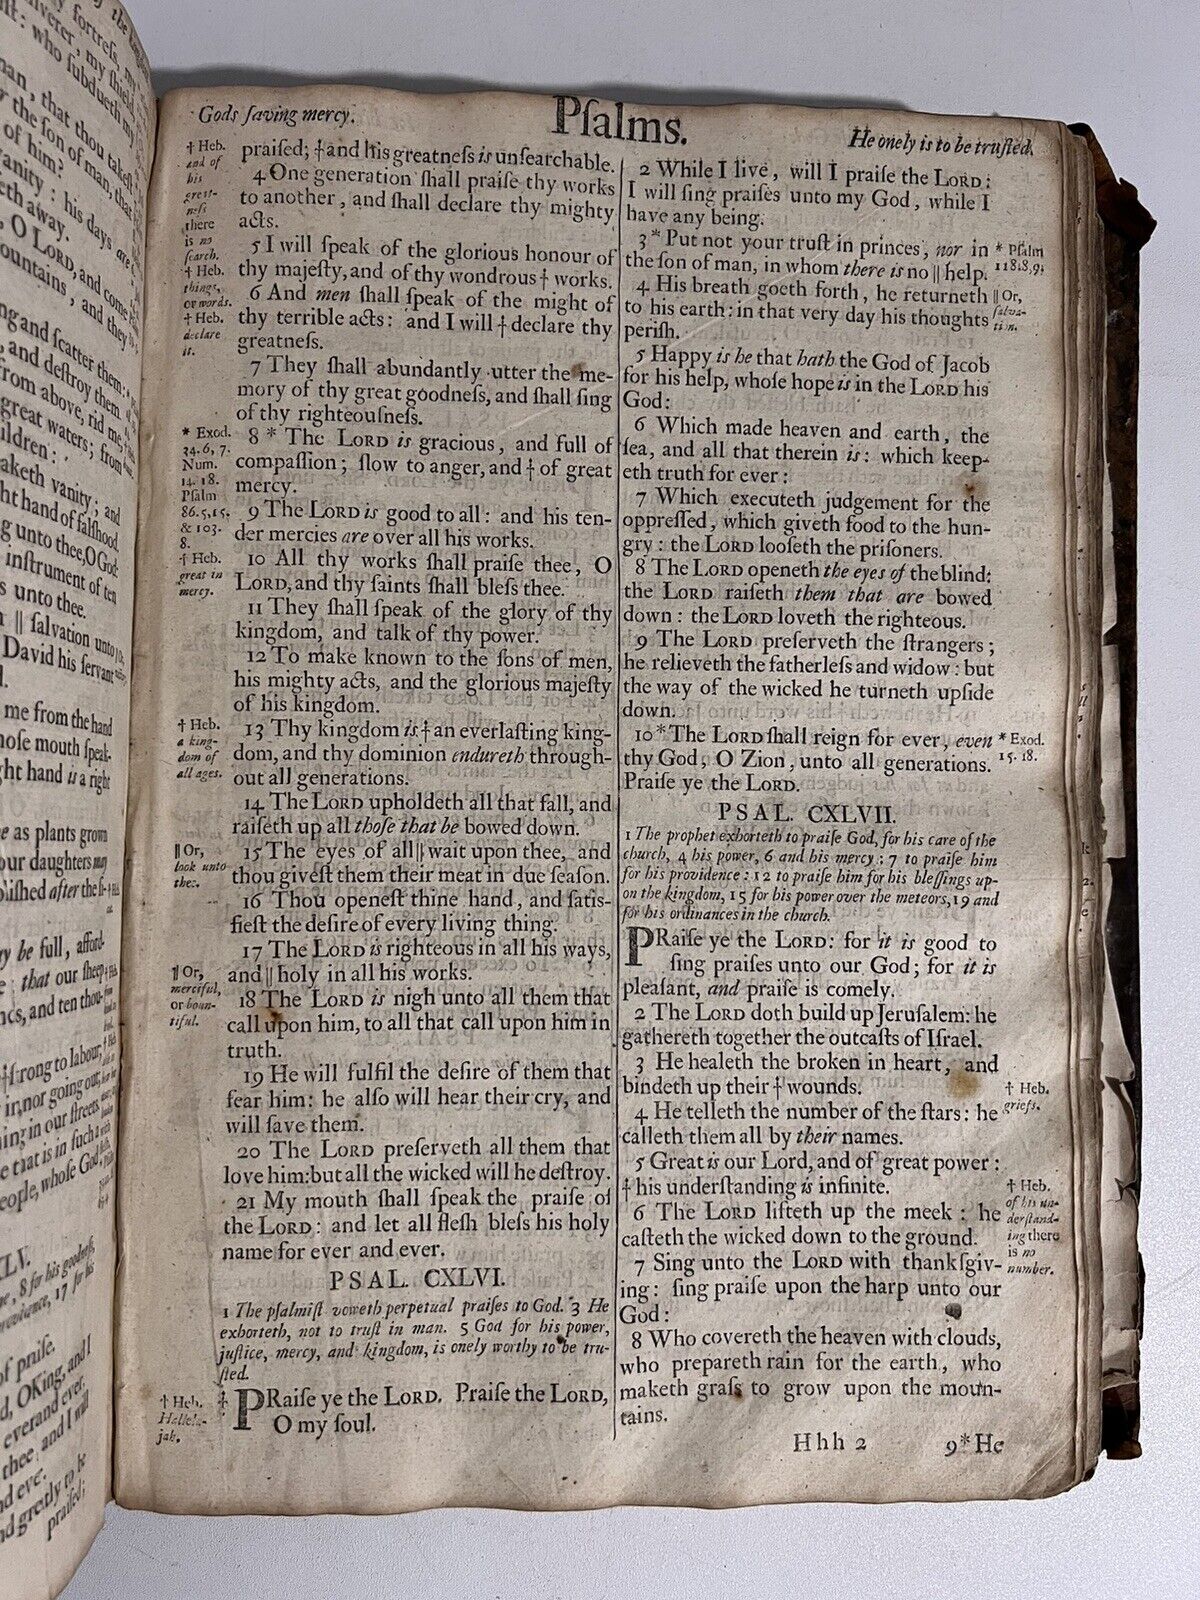 fortreſs, my
my ſhield,
who ſubdueth my
man, that thou takeſt
the ſon of man, that
of him?
vanity: his days are
away.
O LORD, and come
mountains, and they
and ſcatter them:
and deſtroy them.
from above, rid me,
great waters; from
children:
vanity; and
hand of falſhood.
unto thee, O God:
inſtrument of ten
unto thee.
|| ſalvation unto
David his ſervant
me from the hand
whoſe mouth ſpeak-
right hand is a right
as plants grown
our daughters may
poliſhed after the ſi-
be full, afford-
that our ſheep
and ten thou-
ſtrong to labour,
in, nor going out,
in our ſtreets.
that is in ſuch a
people, whoſe God
8 for his goodneſs,
providence, 17 for his
of praiſe.
O King, and I
ever and ever.
thee, and I will
and ever.
and greatly to be
praiſed;
Gods ſaving mercy.
Pſalms.
He onely is to be truſted.
† Heb.
and of
his
great-
neſs
there
is no
ſearch.
† Heb.
things,
or words.
† Heb.
declare
it.
* Exod.
34.6,7.
Num.
14.18.
Pſalm
86.5,15.
& 103.
8.
† Heb.
great in
mercy.
† Heb.
a king-
dom of
all ages.
|| Or,
look unto
thee.
|| Or,
merciful,
or boun-
tiful.
† Heb.
Hallelu-
jah.
praiſed; † and his greatneſs is unſearchable.
4 One generation ſhall praiſe thy works
to another, and ſhall declare thy mighty
acts.
5 I will ſpeak of the glorious honour of
thy majeſty, and of thy wondrous † works.
6 And men ſhall ſpeak of the might of
thy terrible acts: and I will † declare thy
greatneſs.
7 They ſhall abundantly utter the me-
mory of thy great goodneſs, and ſhall ſing
of thy righteouſneſs.
8 * The LORD is gracious, and full of
compaſſion; ſlow to anger, and † of great
mercy.
9 The LORD is good to all: and his ten-
der mercies are over all his works.
10 All thy works ſhall praiſe thee, O
LORD, and thy ſaints ſhall bleſs thee.
11 They ſhall ſpeak of the glory of thy
kingdom, and talk of thy power.
12 To make known to the ſons of men,
his mighty acts, and the glorious majeſty
of his kingdom.
13 Thy kingdom is † an everlaſting king-
dom, and thy dominion endureth through-
out all generations.
14 The LORD upholdeth all that fall, and
raiſeth up all thoſe that be bowed down.
15 The eyes of all || wait upon thee, and
thou giveſt them their meat in due ſeaſon.
16 Thou openeſt thine hand, and ſatiſ-
fieſt the deſire of every living thing.
17 The LORD is righteous in all his ways,
and || holy in all his works.
18 The LORD is nigh unto all them that
call upon him, to all that call upon him in
truth.
19 He will fulfil the deſire of them that
fear him: he alſo will hear their cry, and
will ſave them.
20 The LORD preſerveth all them that
love him: but all the wicked will he deſtroy.
21 My mouth ſhall ſpeak the praiſe of
the LORD: and let all fleſh bleſs his holy
name for ever and ever.
PSAL. CXLVI.
1 The pſalmiſt voweth perpetual praiſes to God. 3 He
exhorteth, not to truſt in man. 5 God for his power,
juſtice, mercy, and kingdom, is onely worthy to be tru-
ſted.
‡ PRaiſe ye the LORD. Praiſe the LORD,
O my ſoul.
2 While I live, will I praiſe the LORD:
I will ſing praiſes unto my God, while I
have any being.
3 * Put not your truſt in princes, nor in
the ſon of man, in whom there is no || help.
4 His breath goeth forth, he returneth
to his earth: in that very day his thoughts
periſh.
5 Happy is he that hath the God of Jacob
for his help, whoſe hope is in the LORD his
God:
6 Which made heaven and earth, the
ſea, and all that therein is: which keep-
eth truth for ever:
7 Which executeth judgement for the
oppreſſed, which giveth food to the hun-
gry: the LORD looſeth the priſoners.
8 The LORD openeth the eyes of the blind:
the LORD raiſeth them that are bowed
down: the LORD loveth the righteous.
9 The LORD preſerveth the ſtrangers;
he relieveth the fatherleſs and widow: but
the way of the wicked he turneth upſide
down.
10 * The LORD ſhall reign for ever, even
thy God, O Zion, unto all generations.
Praiſe ye the LORD.
PSAL. CXLVII.
1 The prophet exhorteth to praiſe God, for his care of the
church, 4 his power, 6 and his mercy: 7 to praiſe him
for his providence: 12 to praiſe him for his bleſſings up-
on the kingdom, 15 for his power over the meteors, 19 and
for his ordinances in the church.
PRaiſe ye the LORD: for it is good to
ſing praiſes unto our God; for it is
pleaſant, and praiſe is comely.
2 The LORD doth build up Jeruſalem: he
gathereth together the outcaſts of Iſrael.
3 He healeth the broken in heart, and
bindeth up their † wounds.
4 He telleth the number of the ſtars: he
calleth them all by their names.
5 Great is our Lord, and of great power:
† his underſtanding is infinite.
6 The LORD lifteth up the meek: he
caſteth the wicked down to the ground.
7 Sing unto the LORD with thankſgiv-
ing: ſing praiſe upon the harp unto our
God:
8 Who covereth the heaven with clouds,
who prepareth rain for the earth, who
maketh graſs to grow upon the moun-
tains.
Hhh 2
9 * He
* Pſalm
118.8,9.
|| Or,
ſalva-
tion.
* Exod.
15.18.
† Heb.
griefs.
† Heb.
of his un-
derſtand-
ing there
is no
number.